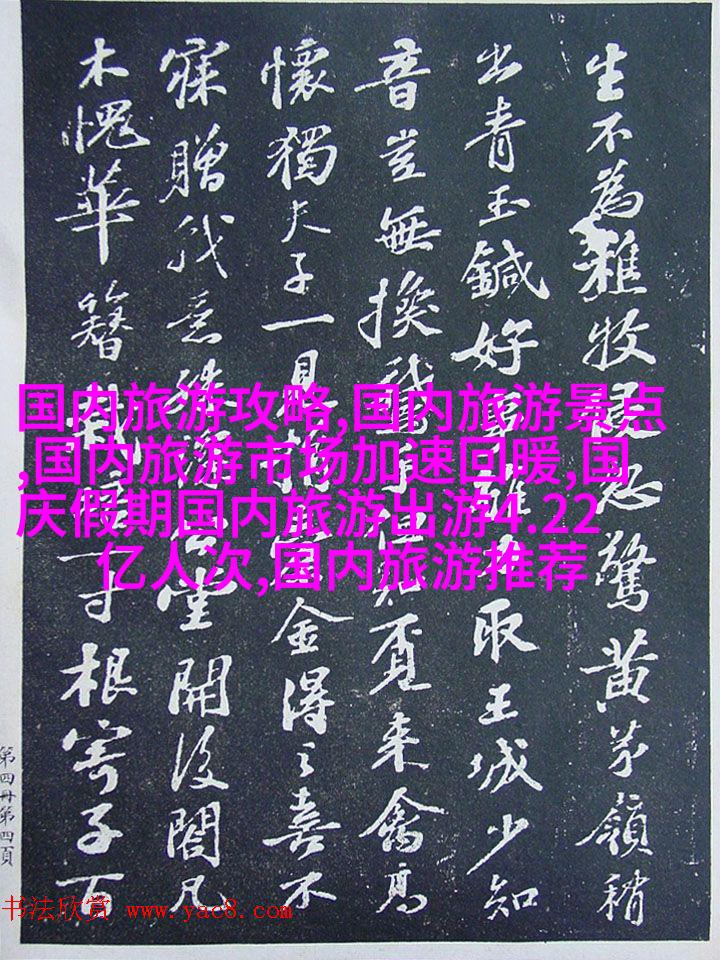 国内旅游攻略,国内旅游景点
,国内旅游市场加速回暖,国
庆假期国内旅游出游4.22
亿人次,国内旅游推荐
生不為雅牧忍驚黃茅嶺稍
出青玉鍼好事雖取王城少知
音豈無換鵝手但知覓來禽高
懷獨夫子一見捐金得之喜不
寐贈我意殊深公堂開後閣凡
木愧華簪栽一寸根寄子百
第四冊第四頁
书法欣赏 www.yac8.com